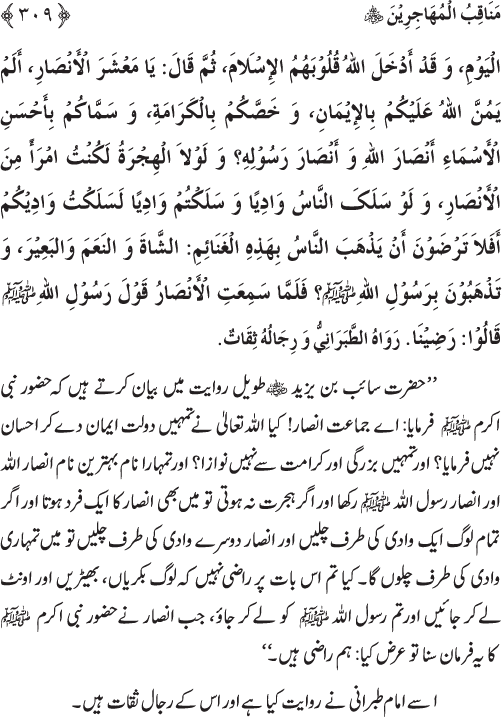 مَنَاقِبُ الْمُهَاجِرِيْنَ ﷺ ﴿۳۰۹﴾
الْيَوْمِ، وَ قَدْ أَدْخَلَ اللهُ قُلُوْبَهُمُ الإِسْلَامَ، ثُمَّ قَالَ: يَا مَعْشَرَ الْأَنْصَارِ، أَلَمْ
يَمُنَّ اللهُ عَلَيْكُمْ بِالإِيْمَانِ، وَ خَصَّكُمْ بِالْكَرَامَةِ، وَ سَمَّاكُمْ بِأَحْسَنِ
الْأَسْمَاءِ أَنْصَارَ اللهِ وَ أَنْصَارَ رَسُوْلِهِ؟ وَ لَوْلَا الْهِجْرَةُ لَكُنْتُ امْرَأً مِنَ
الْأَنْصَارِ، وَ لَوْ سَلَكَ النَّاسُ وَادِيًا وَ سَلَكْتُمْ وَادِيًا لَسَلَكْتُ وَادِيَكُمْ
أَفَلاَ تَرْضَوْنَ أَنْ يَذْهَبَ النَّاسُ بِهَذِهِ الْغَنَائِمِ: الشَّاةَ وَ النَّعَمَ وَالْبَعِيْرَ، وَ
تَذْهَبُوْنَ بِرَسُوْلِ اللهِ ﷺ؟ فَلَمَّا سَمِعَتِ الْأَنْصَارُ قَوْلَ رَسُوْلِ اللهِ ﷺ
قَالُوْا: رَضِيْنَا. رَوَاهُ الطَّبَرَانِيُّ وَ رِجَالُهُ ثِقَاتٌ.
’’حضرت سائب بن یزید ﷺ طویل روایت میں بیان کرتے ہیں کہ حضور نبی
اکرم ﷺ فرمایا: اے جماعت انصار! کیا اللہ تعالیٰ نے تمہیں دولت ایمان دے کر احسان
نہیں فرمایا؟ اور تمہیں بزرگی اور کرامت سے نہیں نوازا؟ اور تمہارا نام بہترین نام انصار اللہ
اور انصار رسول اللہ ﷺ رکھا اور اگر ہجرت نہ ہوتی تو میں بھی انصار کا ایک فرد ہوتا اور اگر
تمام لوگ ایک وادی کی طرف چلیں اور انصار دوسرے وادی کی طرف چلیں تو میں تمہاری
وادی کی طرف چلوں گا۔ کیا تم اس بات پر راضی نہیں کہ لوگ بکریاں، بھیڑیں اور اونٹ
لے کر جائیں اور تم رسول اللہ ﷺ کو لے کر جاؤ، جب انصار نے حضور نبی اکرم ﷺ
کا یہ فرمان سنا تو عرض کیا: ہم راضی ہیں۔‘‘
اسے امام طبرانی نے روایت کیا ہے اور اس کے رجال ثقات ہیں۔